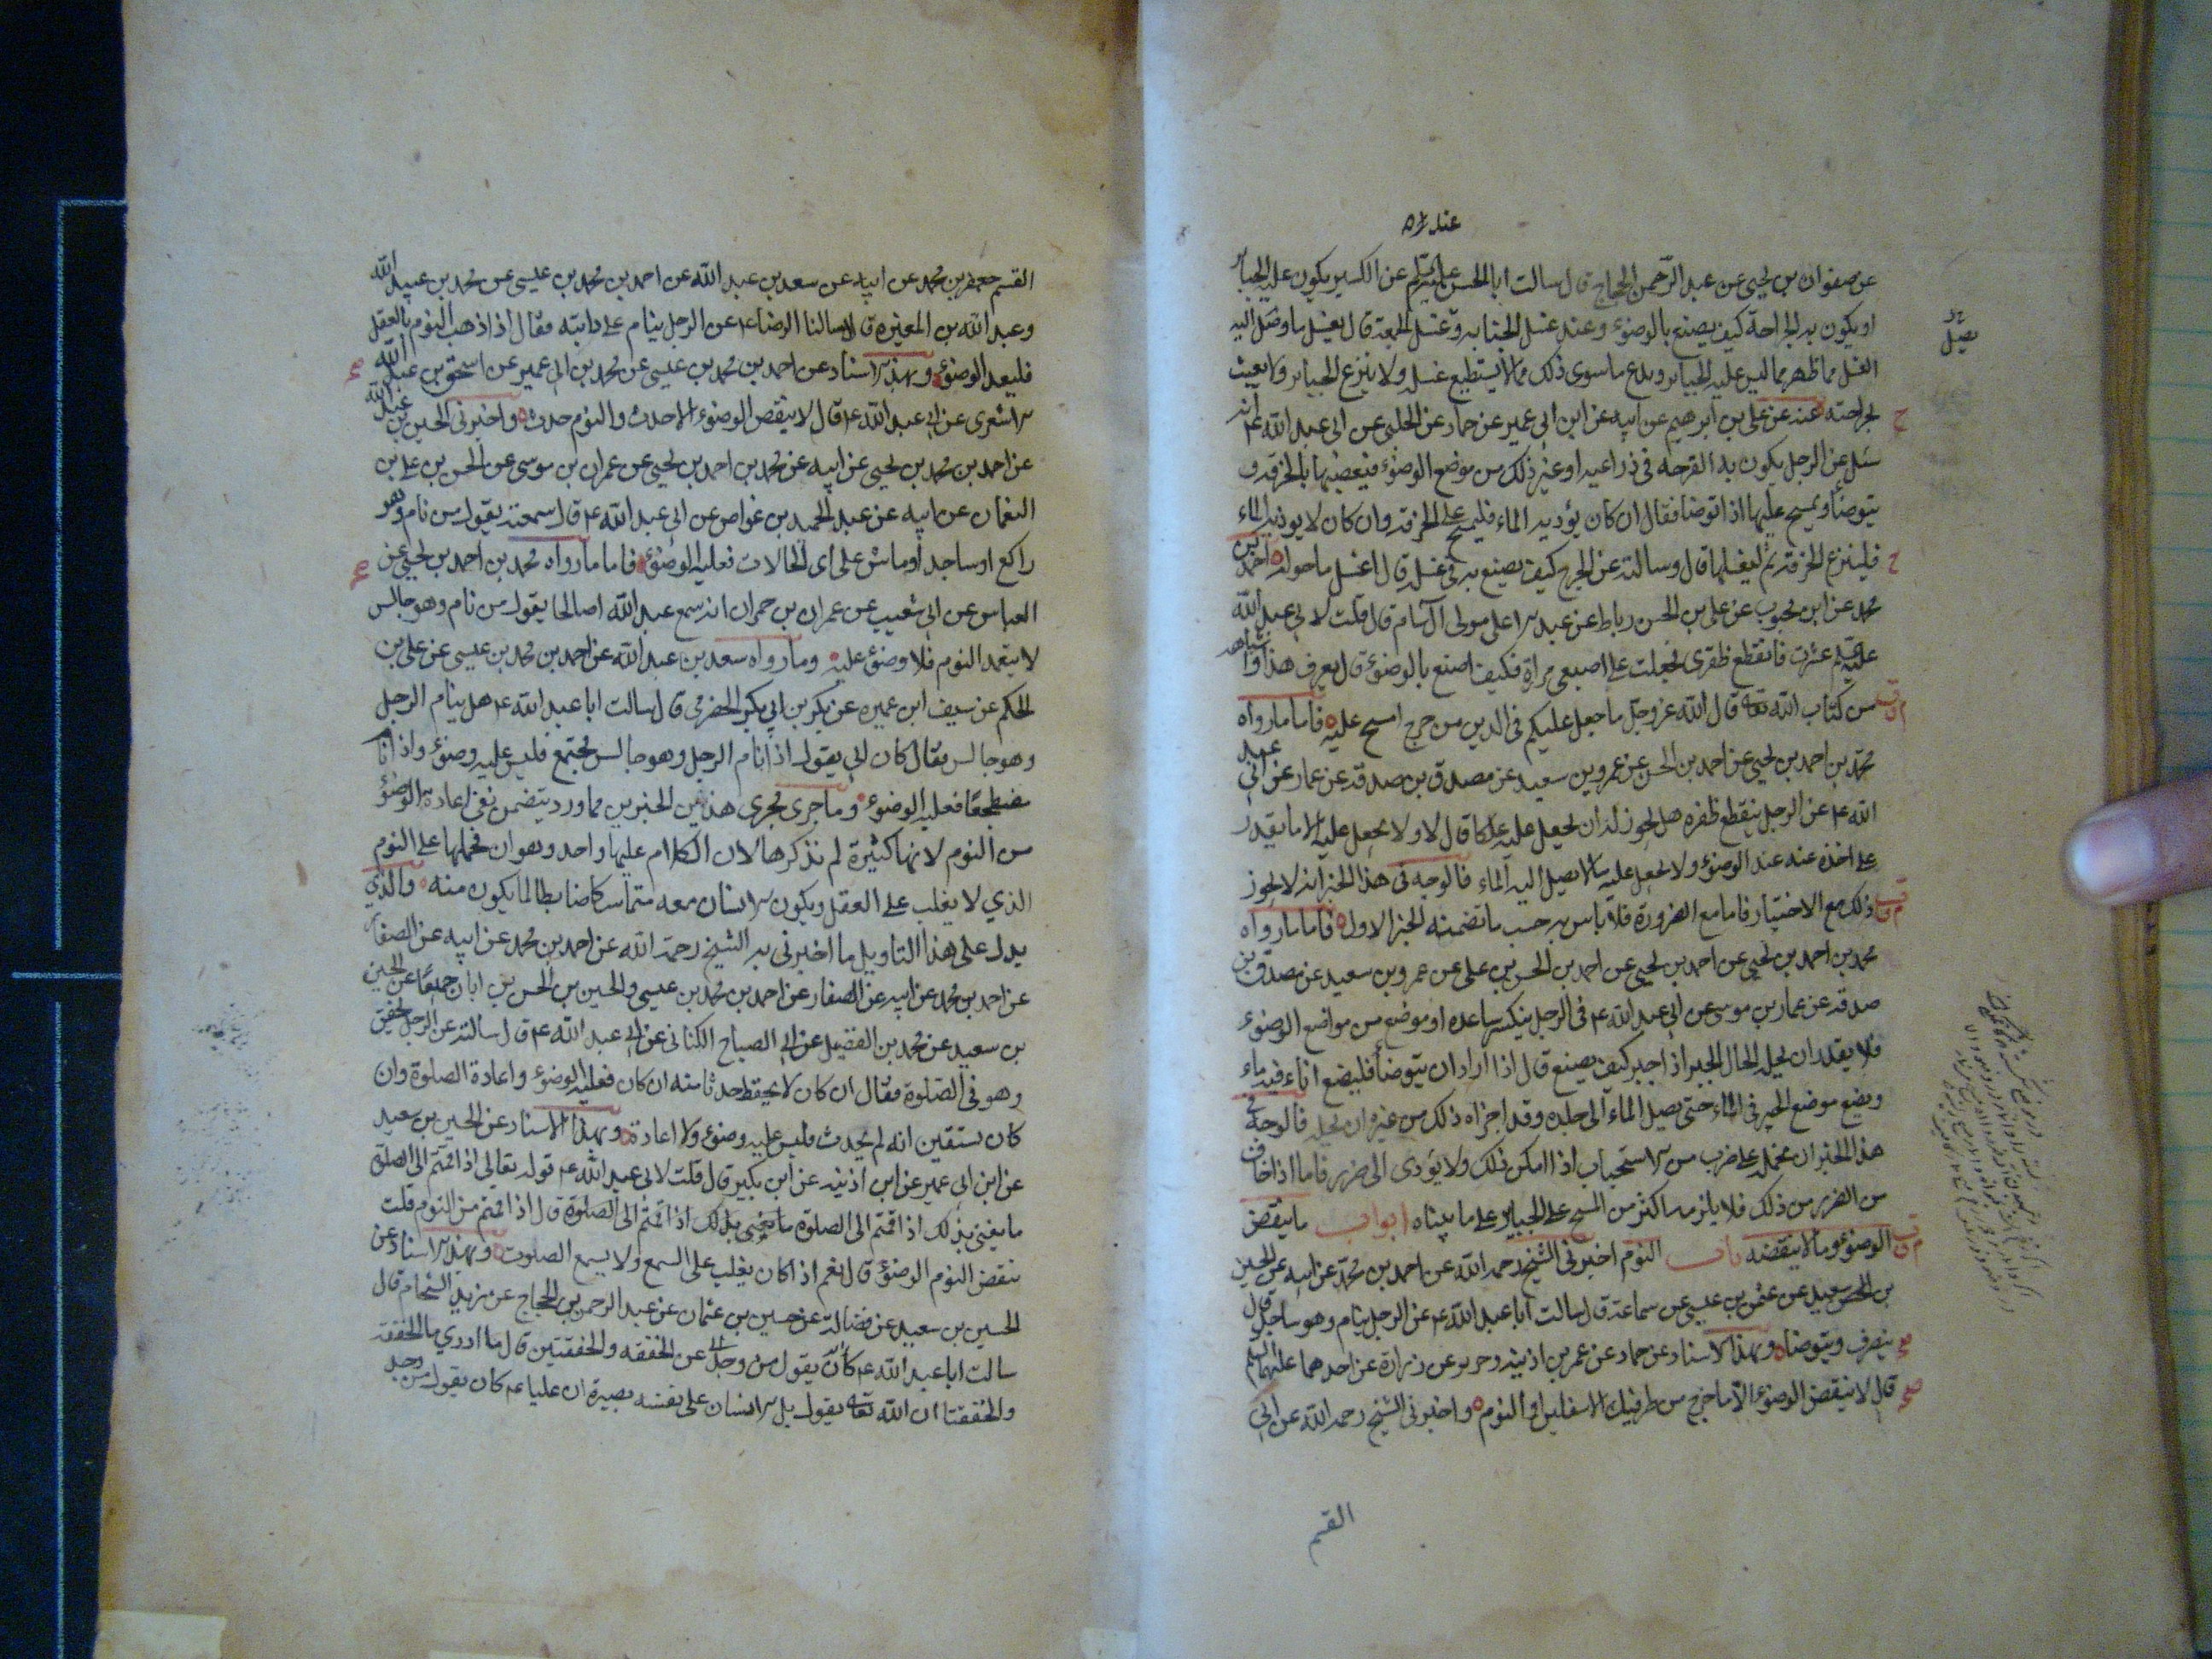 عند ره
عن صفوان بن يحيى عن عبد الرحمن الحجاج قال سالت ابا الحسن عليه السلم عن الكسير يكون عليه الجباير
او يكون به الجراحة كيف يصنع بالوضوء وعند غسل الجنابه وغسل الجمعة قال يغسل ما وصل اليه
الغسل مما ظهر مما ليس عليه الجباير ويدع ما سوى ذلك مما لا يستطيع غسله ولا ينزع الجباير ولا يعبث
بجراحته عنه عن علي بن ابرهيم عن ابيه عن ابن ابى عمير عن حماد عن الحلبى عن ابى عبد الله ع انه
سئل عن الرجل يكون به القرحه فى ذراعيه او غير ذلك من موضع الوضوء فيعصبها بالخرقه و
يتوضأ ويمسح عليها اذا توضا فقال ان كان يؤذيه الماء فليمسح على الخرقه وان كان لا يوذيه الماء
فلينزع الخرقة ثم ليغسلها قال وسالته عن الجرح كيف يصنع به فى غسله قال اغسل ما حوله احمد بن
محمد عن ابن محبوب عن على بن الحسن رباط عن عبد الاعلى مولى ال سام قال قلت لابى عبد الله
عليه السلم عثرت فانقطع ظفرى فجعلت على اصبعى مرارة فكيف اصنع بالوضوء قال يعرف هذا واشباهه
من كتاب الله تعه قال الله عز وجل ما جعل عليكم فى الدين من حرج امسح عليه فاما ما رواه
محمد بن احمد بن يحيى عن احمد بن الحسن عن عمرو بن سعيد عن مصدق بن صدقه عن عمار عن ابى عبد
الله ع عن الرجل ينقطع ظفره هل يجوز له ان يجعل عليه علكا قال لا ولا يجعل عليه الا ما يقدر
على اخذه عنه عند الوضوء ولا يجعل عليه ما لا يصل اليه الماء فالوجه فى هذا الخبر انه لا يجوز
ذلك مع الاختيار فاما مع الضرورة فلا باس به حسب ما تضمنه الخبر الاول فاما ما رواه
محمد بن احمد بن يحيى عن احمد بن يحيى عن احمد بن الحسن بن على عن عمرو بن سعيد عن مصدق بن
صدقه عن عمار بن موسى عن ابى عبد الله ع فى الرجل ينكسر ساعده او موضع من مواضع الوضوء
فلا يقدر ان يحله لحال الجبر اذا جبر كيف يصنع قال اذا اراد ان يتوضأ فليضع اناء فيه ماء
ويضع موضع الجبر فى الماء حتى يصل الماء الى جلده وقد اجزاه ذلك من غير ان يحله فالوجه فى
هذا الخبر ان نحمله على ضرب من الاستحباب اذا امكن ذلك ولا يؤدى الى ضرر فاما اذا خاف
من الضرر من ذلك فلا يلزمه اكثر من المسح على الجباير على ما بيناه ابواب ما ينقض
الوضوء وما لا ينقضه باب النوم اخبرنى الشيخ رحمه الله عن احمد بن محمد عن ابيه عن الحسين
بن الحسن سعيد عن عثمن بن عيسى عن سماعة قال سالت ابا عبد الله ع عن الرجل ينام وهو ساجد قال
ينصرف ويتوضا وبهذا الاسناد عن حماد عن عمر بن اذينه وحريز عن زرارة عن احدهما عليهما السلم
قال لا ينقض الوضوء الا ما خرج من طرفيك الاسفلين او النوم واخبرنى الشيخ رحمه الله عن ابى
القسم
القسم جعفر بن محمد عن ابيه عن سعد بن عبد الله عن احمد بن محمد بن عيسى عن محمد بن عبيد الله
وعبد الله بن المغيرة قالا سالنا الرضا ع عن الرجل ينام على دابته فقال اذا ذهب النوم بالعقل
فليعد الوضوء وبهذا الاسناد عن احمد بن محمد بن عيسى عن محمد بن ابى عمير عن اسحق بن عبد الله
الاشعرى عن ابى عبد الله ع قال لا ينقض الوضوء الا حدث والنوم حدث واخبرنى الحسين بن عبيد الله
عن احمد بن محمد بن يحيى عن ابيه عن محمد بن احمد بن يحيى عن عمران بن موسى عن الحسن بن على بن
النعمان عن ابيه عن عبد الحميد بن غواص عن ابى عبد الله ع قال سمعته يقول من نام وهو
راكع او ساجد او ماش على اى الحالات فعليه الوضوء فاما ما رواه محمد بن احمد بن يحيى عن
العباس عن ابى شعيب عن عمران بن حمران انه سمع عبدا لله صالحا يقول من نام وهو جالس
لا يتعمد النوم فلا وضوء عليه وما رواه سعد بن عبد الله عن احمد بن محمد بن عيسى عن على بن
الحكم عن سيف ابن عميره عن بكر بن ابى بكر الحضرمى قال سالت ابا عبد الله ع هل ينام الرجل
وهو جالس فقال كان ابى يقول اذا نام الرجل وهو جالس مجتمع فليس عليه وضوء واذا نام
مضطجعا فعليه الوضوء وما جرى مجرى هذين الخبرين مما ورد يتضمن نفى اعادة الوضوء
من النوم لانها كثيرة لم نذكرها لان الكلام عليها واحد وهو ان نحملها على النوم
الذي لا يغلب على العقل ويكون الانسان معه متماسكا ضابطا لما يكون منه والذي
يدل على هذا التاويل ما اخبرنى به الشيخ رحمه الله عن احمد بن محمد عن ابيه عن الصفار
عن احمد بن محمد عن ابيه عن الصفار عن احمد بن محمد بن عيسى والحسين بن الحسن بن ابان جميعا عن الحسين
بن سعيد عن محمد بن الفضيل عن ابى الصباح الكنانى عن ابى عبد الله ع قال سالته عن الرجل يخفق
وهو فى الصلوة فقال ان كان لا يحفظ حدثا منه ان كان فعليه الوضوء واعادة الصلوة وان
كان يستيقن انه لم يحدث فليس عليه وضوء ولا اعادة وبهذا الاسناد عن الحسين بن سعيد
عن ابن ابى عمير عن ابن اذينه عن ابن بكير قال قلت لابى عبد الله ع قوله تعالى اذا قمتم الى الصلوة
ما يعنى بذلك اذا قمتم الى الصلوة ما يعنى بذلك اذا قمتم الى الصلوة قال اذا قمتم من النوم قلت
ينقض النوم الوضوء قال نعم اذا كان يغلب على السمع ولا يسمع الصوت وبهذا الاسناد عن
الحسين بن سعيد عن فضالة عن حسين بن عثمان عن عبد الرحمن بن الحجاج عن زيد الشحام قال
سالت ابا عبد الله ع عن الخفقه والخفقتين قال ما ادري ما الخفقة
والخفقتان ان الله تعه يقول بل الانسان على نفسه بصيرة ان عليا ع كان يقول من وجد